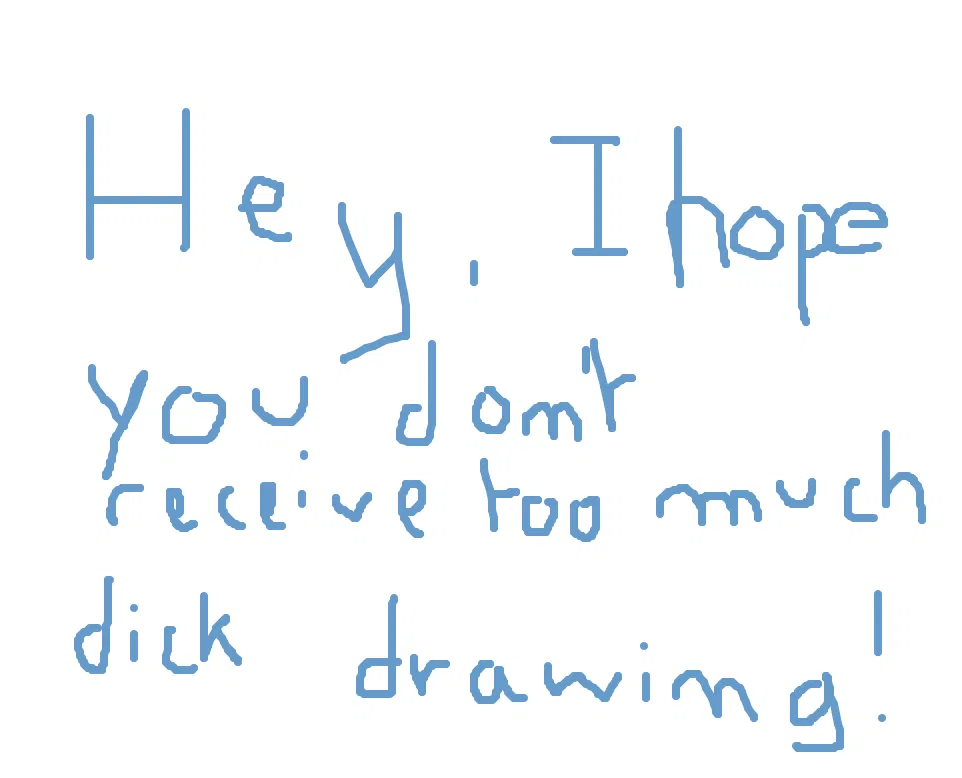 Hey, I hope
you don't
receive too much
dick drawing!